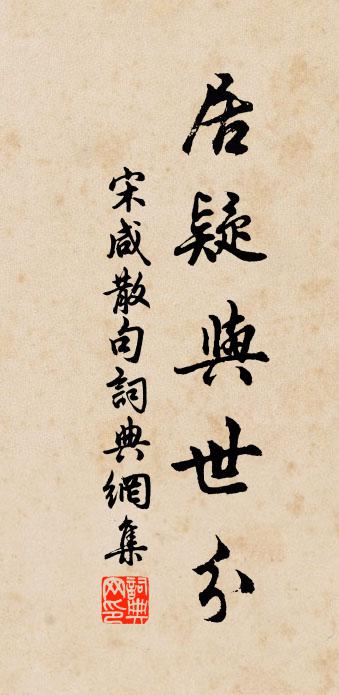 居疑與世分
宋咸散句詞典網集
詞典網印